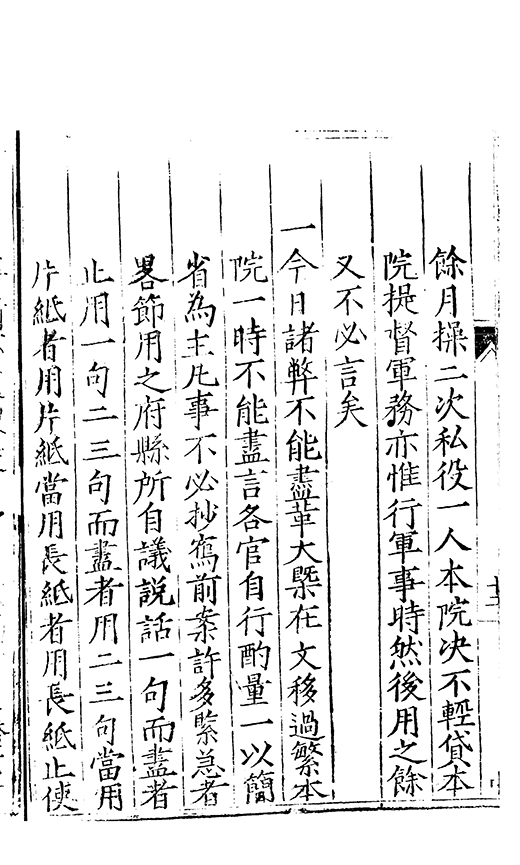 餘月操二次私役一人本院决不輕貸本
院提督軍務亦惟行軍事時然後用之餘
又不必言矣
一今日諸弊不能盡革大槩在文移過繁本
院一時不能盡言各官自行酌量一以簡
省為主凡事不必抄寫前案許多緊急者
畧節用之府縣所自議說話一句而盡者
止用一句二三句而盡者用二三句當用
片紙者用片紙當用長紙者用長紙止使